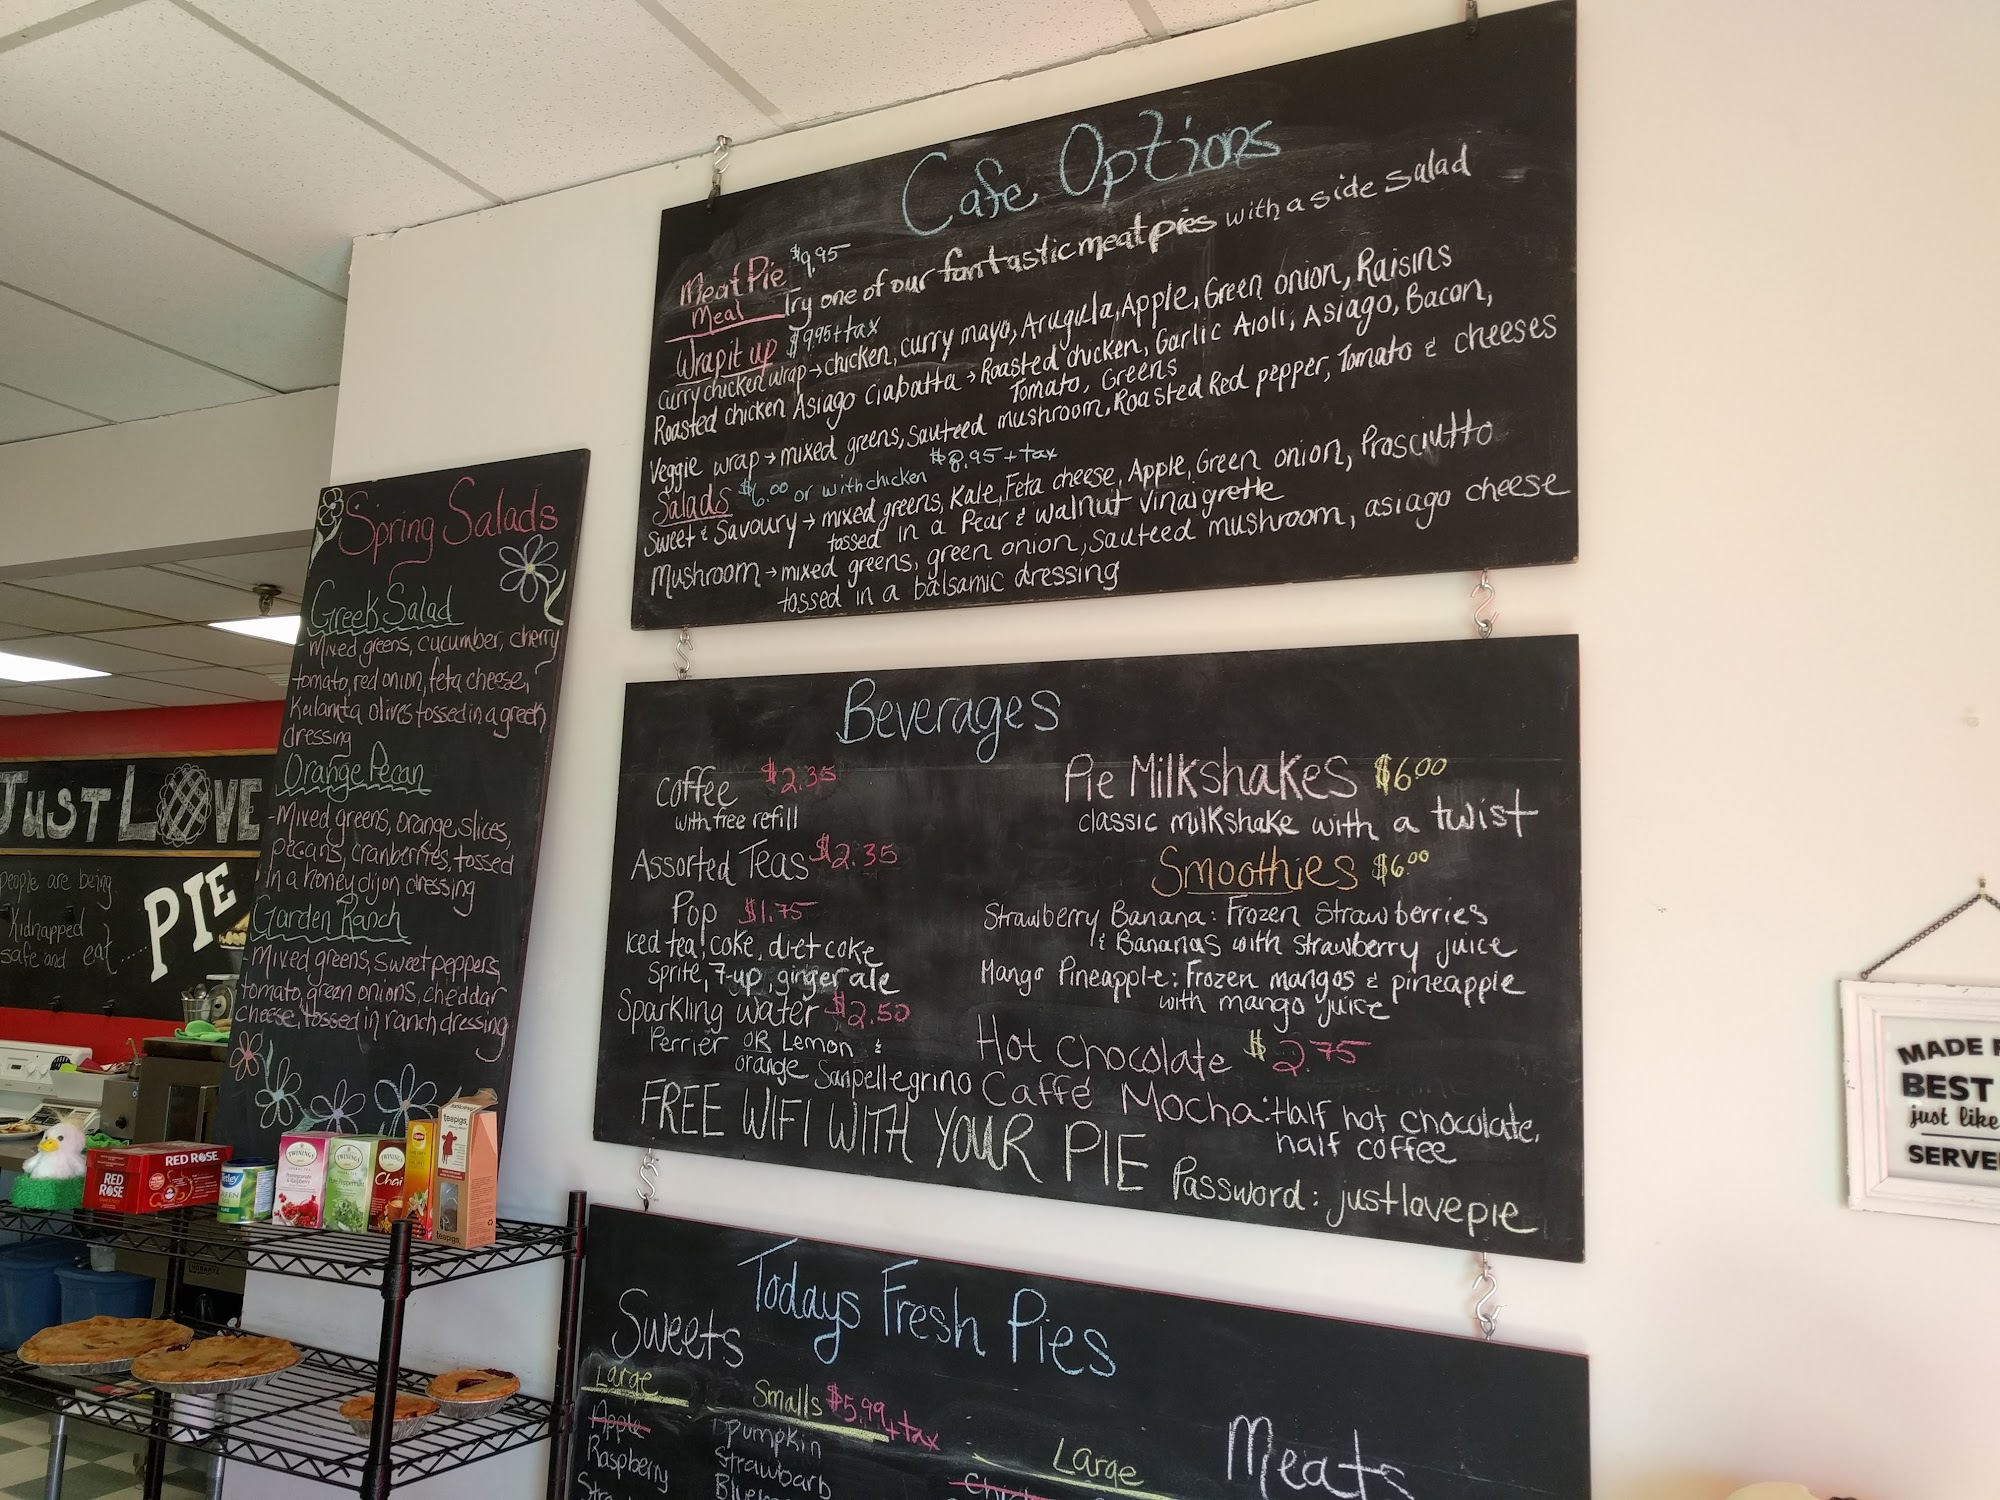 Cafe Options
Meat Pie $9.95
Meal Try one of our fantastic meat pies with a side salad
Wrap it up $9.95 + tax
Curry chicken wrap → chicken, curry mayo, Arugula, Apple, Green onion, Raisins
Roasted chicken Asiago Ciabatta → Roasted chicken, Garlic Aioli, Asiago, Bacon,
Tomato, Greens
Veggie wrap → mixed greens, sauteed mushroom, Roasted Red pepper, Tomato & cheeses
Salads $6.00 or with chicken $8.95 + tax
Sweet & Savoury → mixed greens, Kale, Feta cheese, Apple, Green onion, Prosciutto
tossed in a Pear & walnut vinaigrette
Mushroom → mixed greens, green onion, sauteed mushroom, asiago cheese
tossed in a balsamic dressing
Spring Salads
Greek Salad
- Mixed greens, cucumber, cherry
tomato, red onion, feta cheese,
Kalamta olives tossed in a greek
dressing
Orange Pecan
- Mixed greens, orange slices,
pecans, cranberries, tossed
in a honey dijon dressing
Garden Ranch
- Mixed greens, sweet peppers,
tomato, green onions, cheddar
cheese, tossed in ranch dressing
Beverages
Coffee $2.35
with free refill
Assorted Teas $2.35
Pop $1.75
Iced tea, coke, diet coke
Sprite, 7-up, ginger ale
Sparkling water $2.50
Perrier OR Lemon &
orange Sanpellegrino
Pie Milkshakes $6.00
classic milkshake with a twist
Smoothies $6.00
Strawberry Banana: Frozen strawberries
& Bananas with strawberry juice
Mango Pineapple: Frozen mangos & pineapple
with mango juice
Hot Chocolate $2.75
Caffé Mocha: Half hot chocolate,
half coffee
FREE WIFI WITH YOUR PIE Password: justlovepie
Todays Fresh Pies
Sweets
Large
Apple
Raspberry
Smalls $5.99 + tax
Pumpkin
Strawbarb
Large
Meats
JUST LOVE
PIE
people are being
Kidnapped
safe and eat....
RED ROSE
RED
ROSE
TWININGS
Pomegranate
& Raspberry
TWININGS
Pure Peppermint
Chai
teapigs
teapigs
MADE
BEST
just like
SERVE